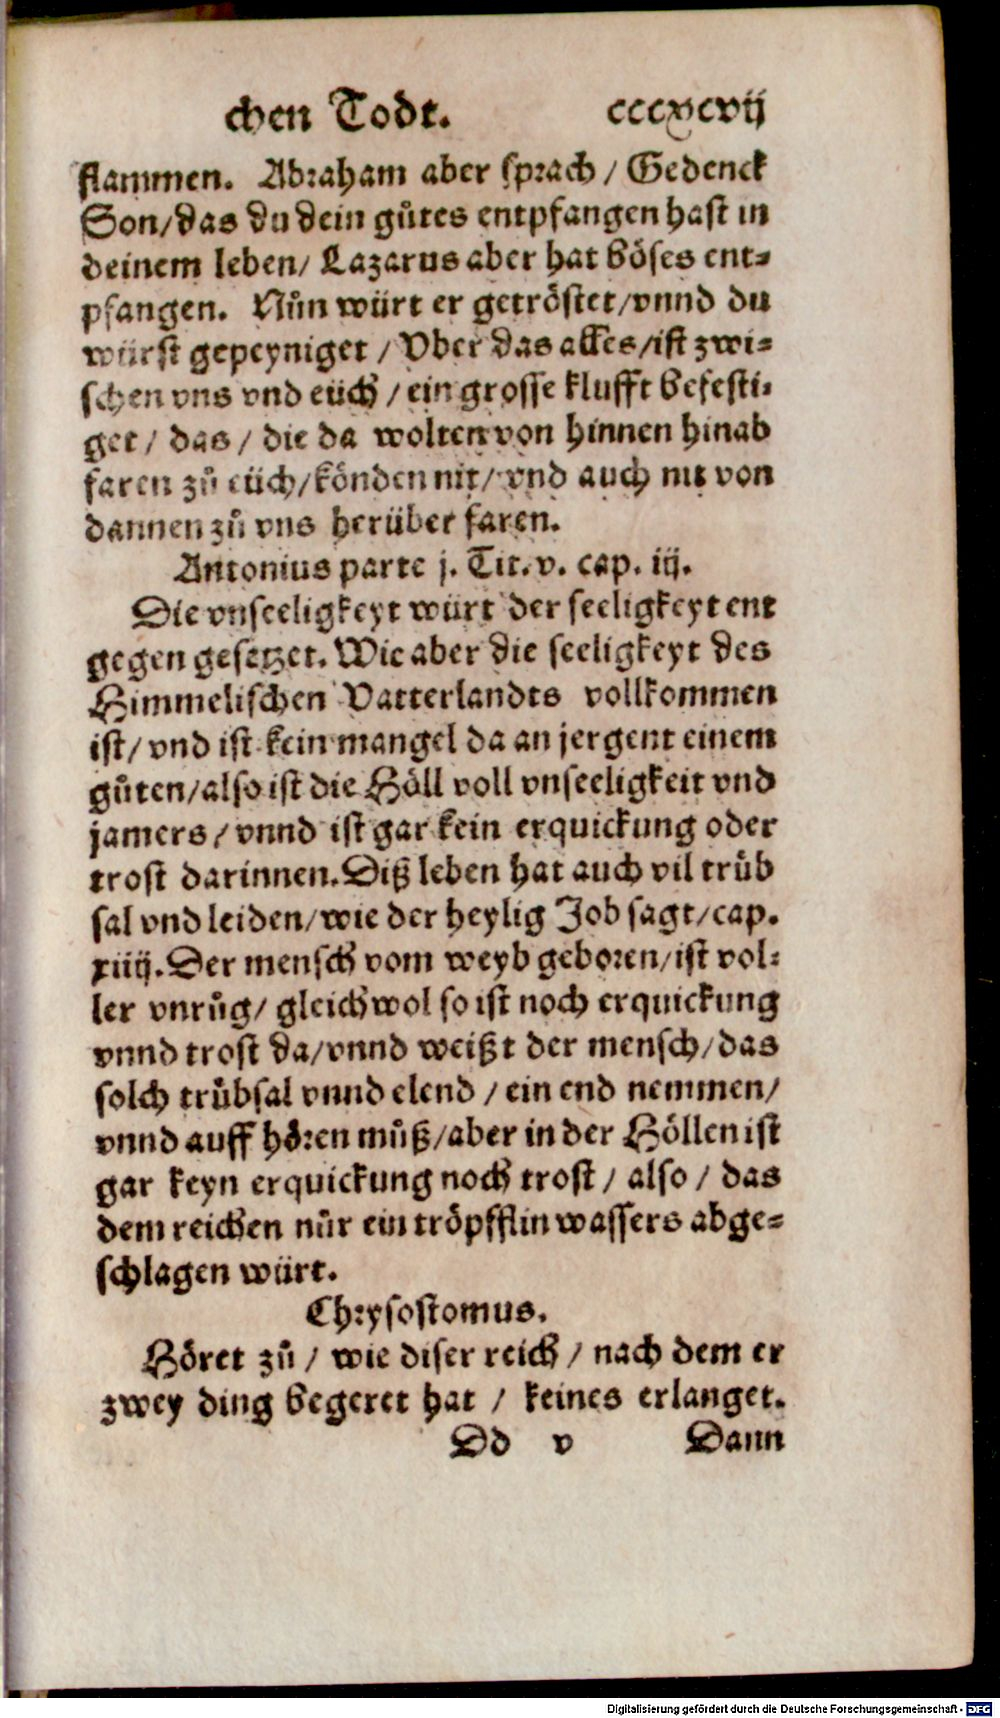 chen Todt. cccxcvij
flammen. Abraham aber sprach / Gedenck
Son/das du dein gůtes entpfangen hast in
deinem leben/ Lazarus aber hat böses ent-
pfangen. Nůn würt er getröstet/vnnd du
würst gepeyniget / Vber das alles/ist zwi-
schen vns vnd eüch / ein grosse klufft befesti-
get / das / die da wolten von hinnen hinab
faren zů eüch/könden nit/ vnd auch nit von
dannen zů vns herüber faren.
Antonius parte j. Tit. v. cap. iij.
Die vnseeligkeyt würt der seeligkeyt ent
gegen gesetzet. Wie aber die seeligkeyt des
Himmelischen Vatterlandts vollkommen
ist/ vnd ist kein mangel da an jergent einem
gůten/also ist die Höll voll vnseeligkeit vnd
jamers / vnnd ist gar kein erquickung oder
trost darinnen. Diß leben hat auch vil trůb
sal vnd leiden/wie der heylig Job sagt/cap.
xiiij. Der mensch vom weyb geboren/ist vol-
ler vnrůg/ gleichwol so ist noch erquickung
vnnd trost da/vnnd weißt der mensch/das
solch trůbsal vnnd elend / ein end nemmen/
vnnd auff hören můß/aber in der Höllen ist
gar keyn erquickung noch trost / also / das
dem reichen nůr ein tröpfflin wassers abge-
schlagen würt.
Chrysostomus.
Höret zů / wie diser reich / nach dem er
zwey ding begeret hat / keines erlanget.
Dd v Dann
Digitalisierung gefördert durch die Deutsche Forschungsgemeinschaft - DFG